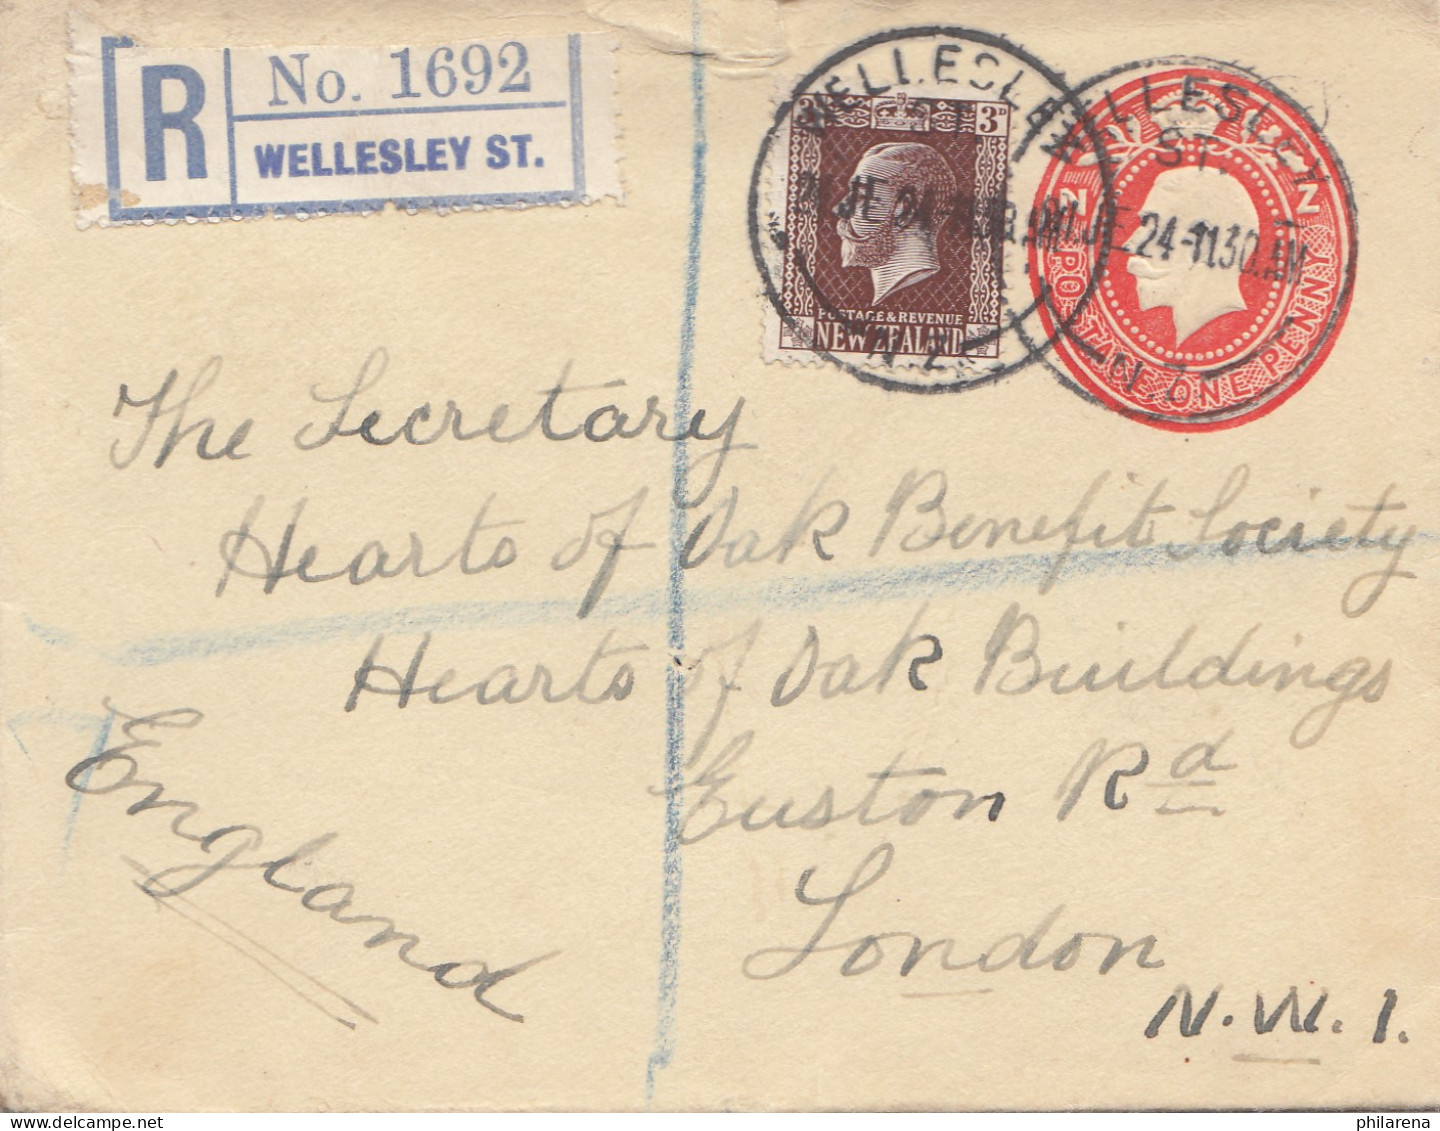 R
No. 1692
WELLESLEY ST.
WELLESLEY
ST.
N.Z.
3D
POSTAGE & REVENUE
NEW ZEALAND
WELLESLEY
ST.
JE 24-11.30.AM
N.Z.
N.Z. POSTAGE ONE PENNY
The Secretary
Hearts of Oak Benefit Society
Hearts of Oak Buildings
Euston Rd
London
N.W.1.
England
philarena.com